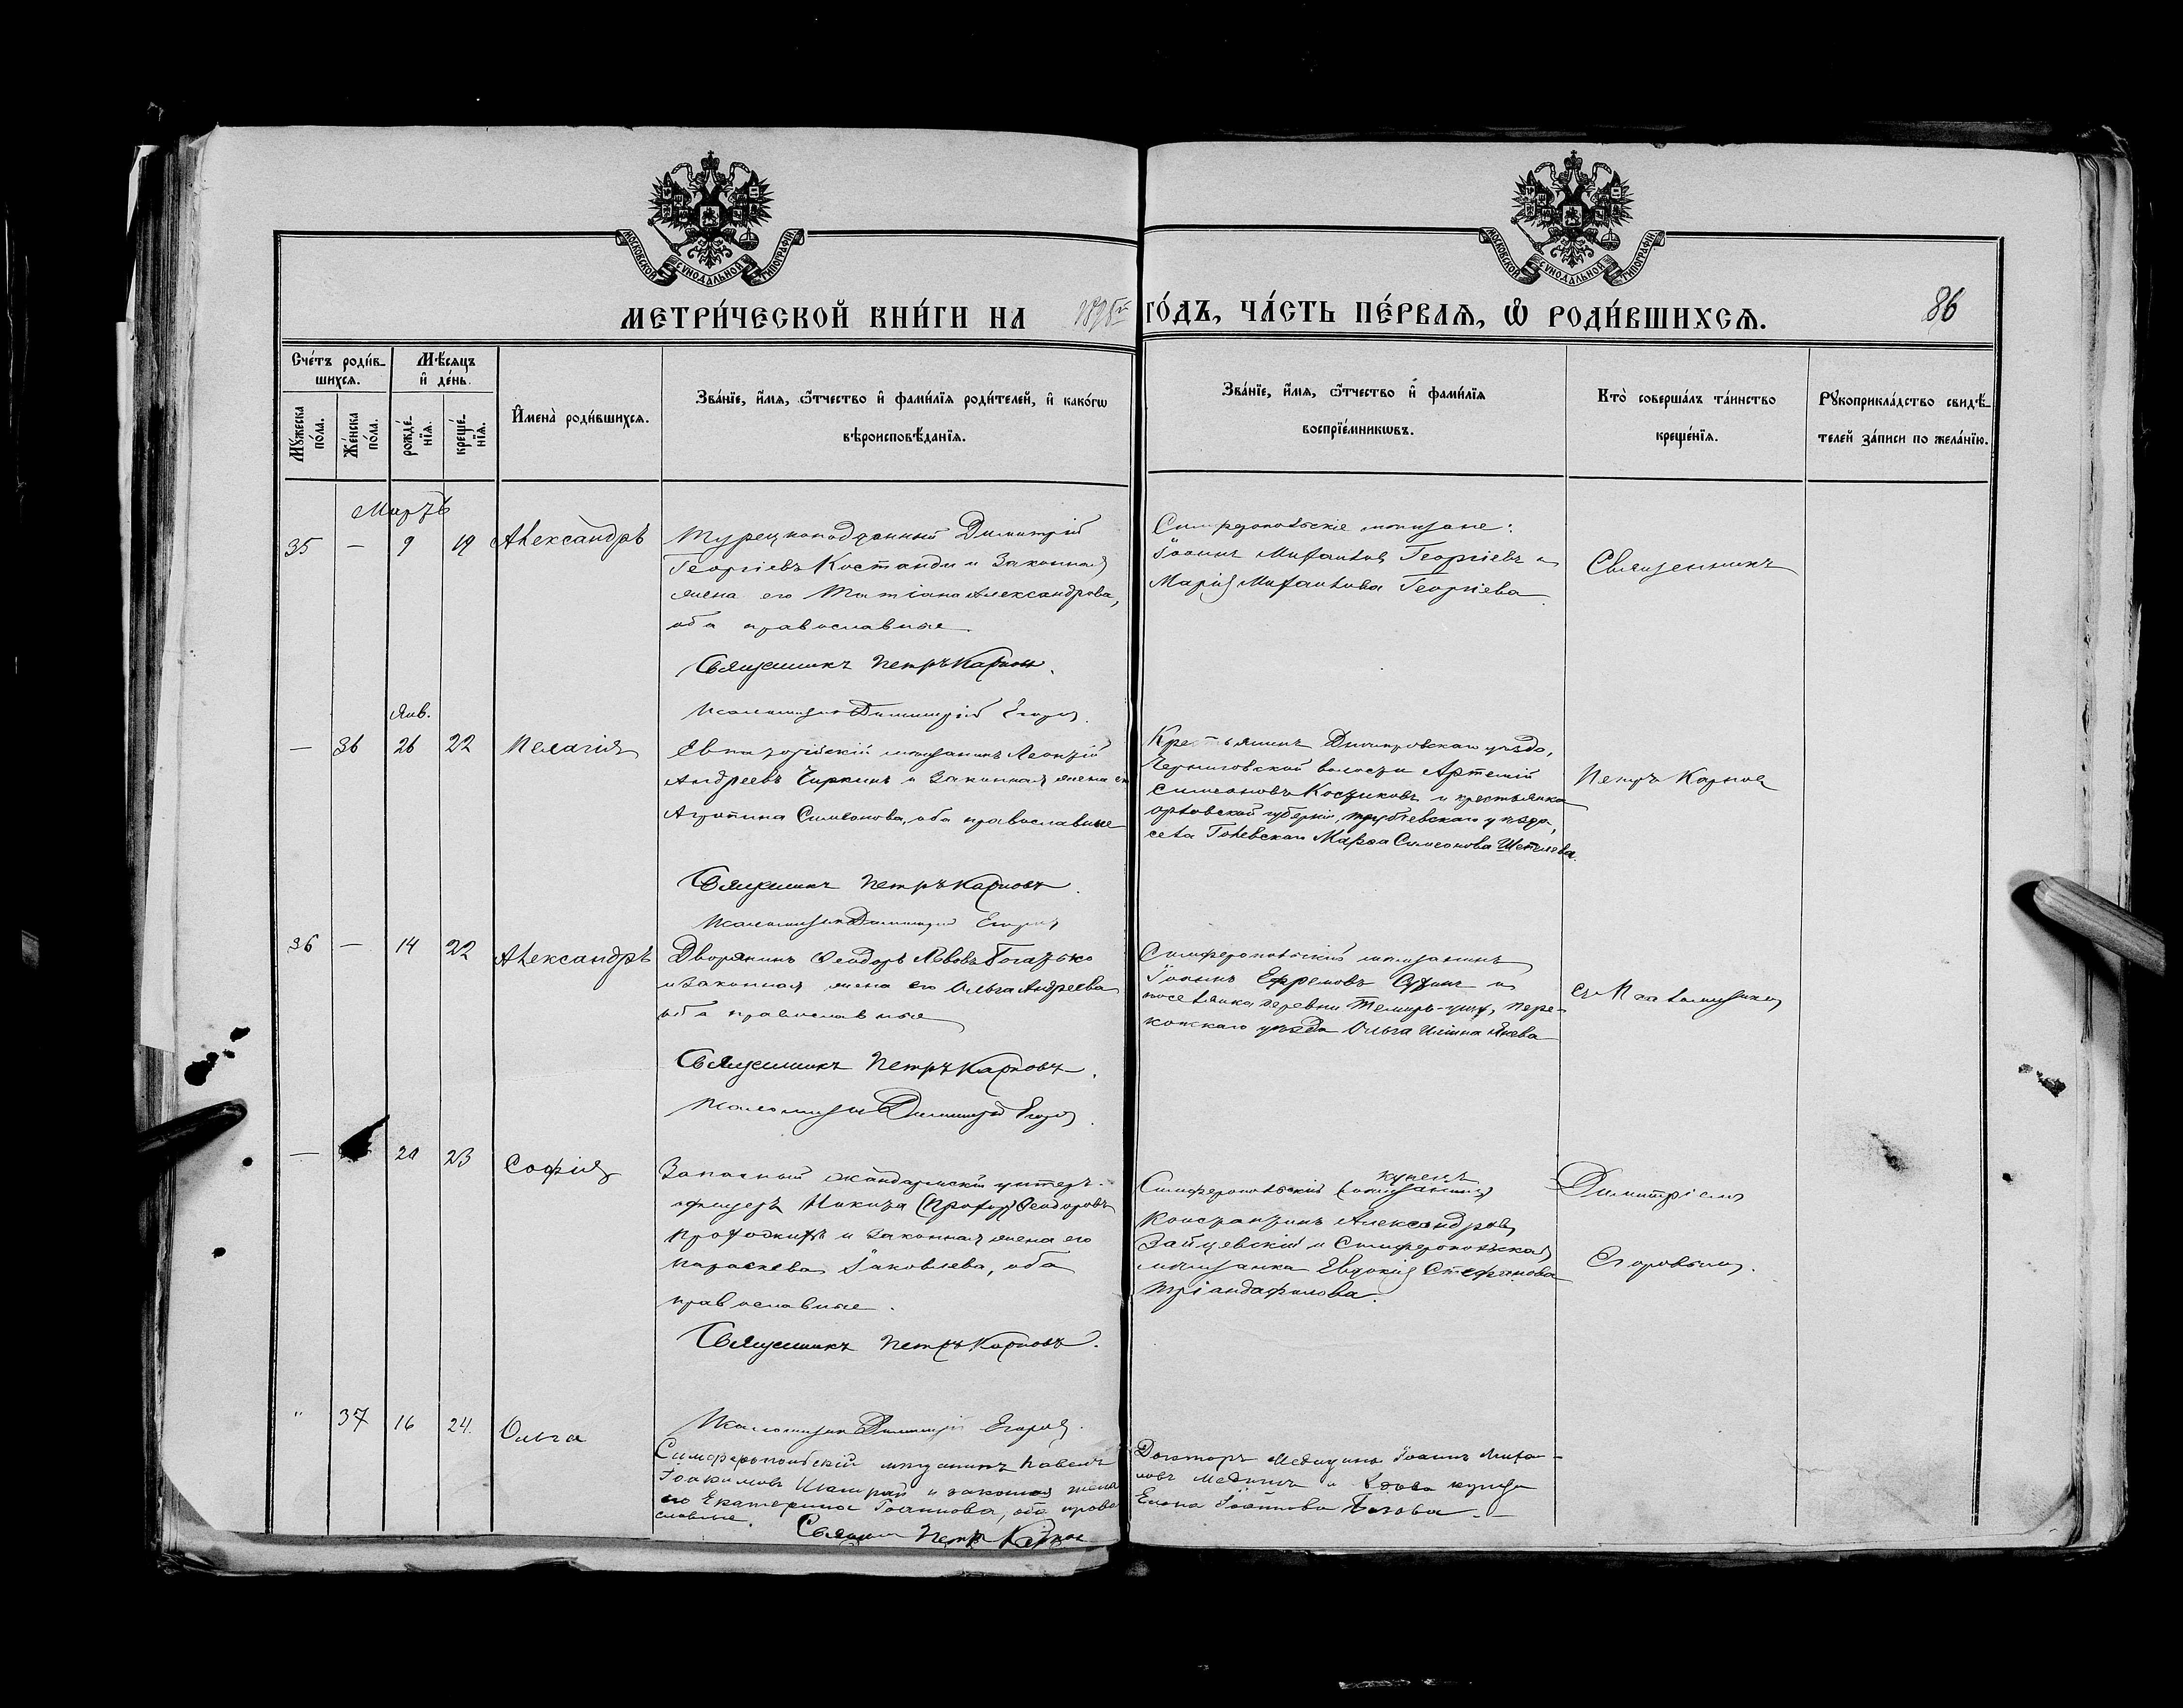 МОСКОВСКОЙ СѴНОДАЛЬНОЙ ТИПОГРАФІИ
МОСКОВСКОЙ СѴНОДАЛЬНОЙ ТИПОГРАФІИ
МЕТРИ́ЧЕСКОЙ КНИ́ГИ НА 1895й ГО́ДЪ, ЧА́СТЬ ПЕ́РВАѦ, Ѽ РОДИ́ВШИХСѦ.
86
Сче́тъ роди́в-
шихсѧ.
Мѣ́сяцъ
и҆ де́нь.
Мꙋ́жеска по́ла.
Же́нска по́ла.
рожде́нїѧ.
креще́нїѧ.
И҆мена̀ роди́вшихсѧ.
Зва́нїе, и҆́мѧ, ѻ҆́тчество и҆ фами́лїѧ роди́телей, и҆ како́гѡ
вѣроисповѣ́данїѧ.
Зва́нїе, и҆́мѧ, ѻ҆́тчество и҆ фами́лїѧ
воспрїе́мникѡвъ.
Кто̀ соверша́лъ та́инство
креще́нїѧ.
Рꙋкоприкла́дство свидѣ́-
телей за́писи по жела́нїю.
Мартъ
35 — 9 19 Александръ
Турецкоподданный Димитрій
Георгіевъ Костанди и законная
жена его Татіана Александрова,
оба православные
Священникъ Петръ Карпов.
Псаломщикъ Димитрій Егоров.
Симферопольскіе мѣщане:
Іоаннъ Михаилов Георгіевъ и
Марія Михаилова Георгіева
Священникъ
Янв.
— 36 26 22 Пелагія
Евпаторійскій мѣщанинъ Леонтій
Андреевъ Чиркинъ и законная жена его
Агрипина Симеонова, оба православные
Священникъ Петръ Карповъ.
Псаломщикъ Димитрій Егоров
Крестьянинъ Днѣпровскаго уѣзда,
Черниговской волости Артемій
Симеоновъ Костиковъ и крестьянка
Орловской губерніи, Трубчевскаго уѣзда,
села Марѳа Симеонова
Петръ Карпов
36 — 14 22 Александръ
Дворянинъ Ѳеодоръ Львовъ
и законная жена его Ольга Андреева
оба православные
Священникъ Петръ Карповъ.
Псаломщикъ Димитрій Егоров.
Симферопольскій мѣщанинъ
Іоаннъ Ефремовъ и
поселянка деревни Пере-
копскаго уѣзда Ольга
съ Псаломщиком
— 20 23 Софія
Запасный жандармскій унтеръ-
офицеръ Никита Ѳеодоровъ
и законная жена его
Параскева Іаковлева, оба
православные.
Священникъ Петръ Карповъ.
Псаломщикъ Димитрій Егоров.
купецъ
Симферопольскій (мѣщанинъ)
Константинъ Александров
Зайцевскій и Симферопольская
мѣщанка Евдокія Стефанова
Тріандафилова.
Димитріемъ
Егоровымъ.
" 37 16 24. Ольга
Симферопольскій мѣщанинъ Павелъ
Іоакимовъ и законная жена
его Екатерина Іоаннова, оба право
славные.
Священ Петр Карпов
Докторъ Медицины Іоаннъ
и вдова купца
Елена Іоаннова